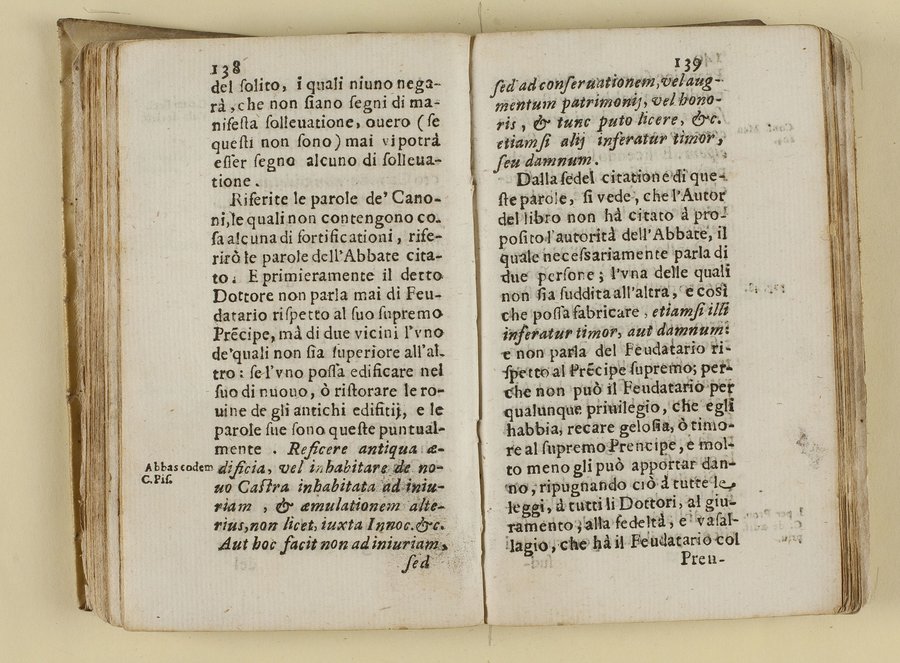 138
del ſolito, i quali niuno nega-
rà, che non ſiano ſegni di ma-
nifeſta ſolleuatione, ouero (ſe
queſti non ſono) mai vi potrà
eſſer ſegno alcuno di ſolleua-
tione.
Riferite le parole de' Cano-
ni, le quali non contengono co-
ſa alcuna di fortificationi, rife-
rirò le parole dell'Abbate cita-
to. E primieramente il detto
Dottore non parla mai di Feu-
datario riſpetto al ſuo ſupremo
Prẽcipe, mà di due vicini l'vno
de'quali non ſia ſuperiore all'al-
tro: ſe l'vno poſſa edificare nel
ſuo di nuouo, ò riſtorare le ro-
uine de gli antichi edifitij, e le
parole ſue ſono queſte puntual-
mente. Reficere antiqua æ-
dificia, vel inhabitare de no-
uo Caſtra inhabitata ad iniu-
riam, & æmulationem alte-
rius, non licet, iuxta Innoc. &c.
Aut hoc facit non ad iniuriam,
ſed
Abbas eodem
C. Piſ.
139
ſed ad conſeruationem, vel aug-
mentum patrimonij, vel hono-
ris, & tunc puto licere, &c.
etiamſi alij inferatur timor,
ſeu damnum.
Dalla fedel citatione di que-
ſte parole, ſi vede, che l'Autor
del libro non hà citato à pro-
poſito l'autorità dell'Abbate, il
quale neceſſariamente parla di
due perſone; l'vna delle quali
non ſia ſuddita all'altra, e così
che poſſa fabricare, etiamſi illi
inferatur timor, aut damnum:
e non parla del Feudatario ri-
ſpetto al Prẽcipe ſupremo; per-
che non può il Feudatario per
qualunque priuilegio, che egli
habbia, recare geloſia, ò timo-
re al ſupremo Prencipe, e mol-
to meno gli può apportar dan-
no, ripugnando ciò à tutte le
leggi, à tutti li Dottori, al giu-
ramento, alla fedeltà, e vaſal-
lagio, che hà il Feudatario col
Pren-